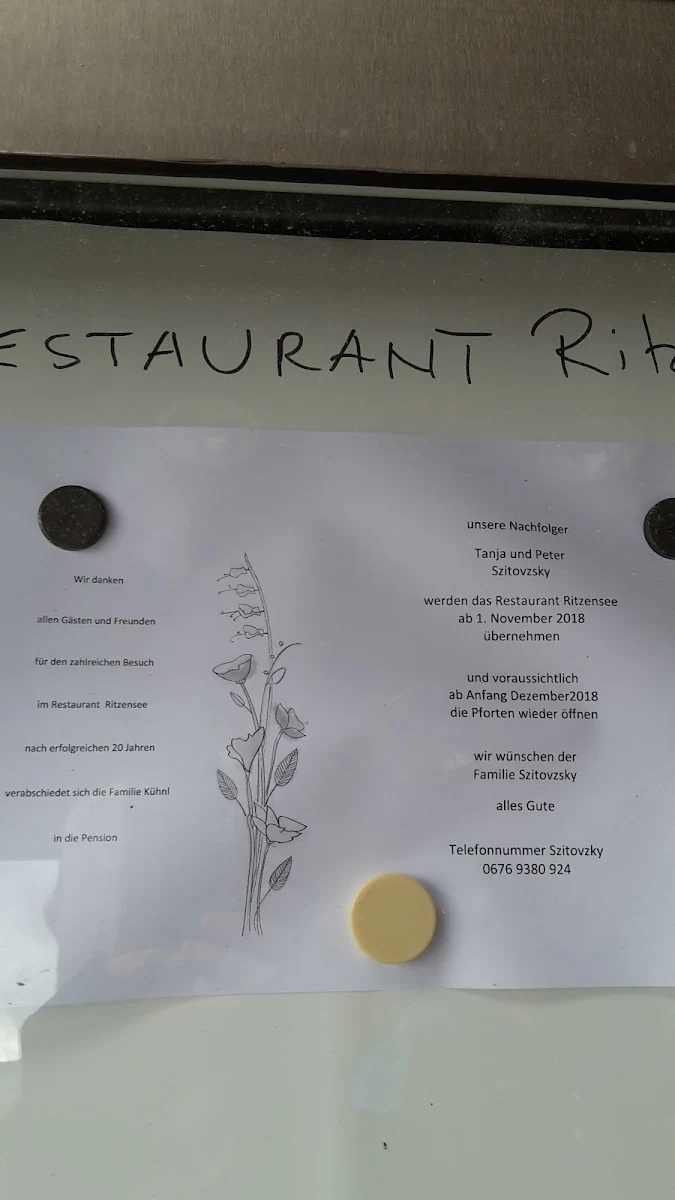 ESTAURANT Rit
Wir danken
allen Gästen und Freunden
für den zahlreichen Besuch
im Restaurant Ritzensee
nach erfolgreichen 20 Jahren
verabschiedet sich die Familie Kühnl
in die Pension
unsere Nachfolger
Tanja und Peter
Szitovzsky
werden das Restaurant Ritzensee
ab 1. November 2018
übernehmen
und voraussichtlich
ab Anfang Dezember2018
die Pforten wieder öffnen
wir wünschen der
Familie Szitovzsky
alles Gute
Telefonnummer Szitovzky
0676 9380 924